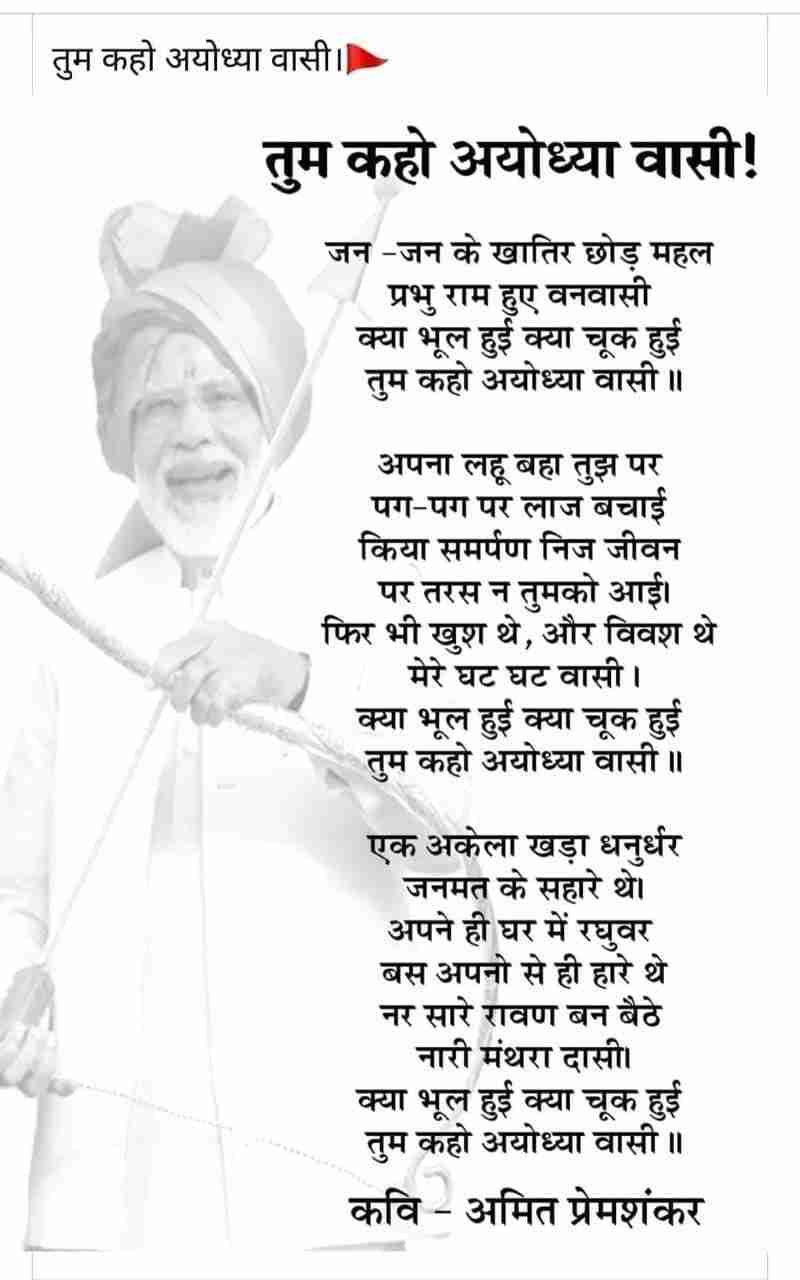 तुम कहो अयोध्या वासी।🚩
तुम कहो अयोध्या वासी!
जन -जन के खातिर छोड़ महल
प्रभु राम हुए वनवासी
क्या भूल हुई क्या चूक हुई
तुम कहो अयोध्या वासी॥
अपना लहू बहा तुझ पर
पग-पग पर लाज बचाई
किया समर्पण निज जीवन
पर तरस न तुमको आई।
फिर भी खुश थे, और विवश थे
मेरे घट घट वासी।
क्या भूल हुई क्या चूक हुई
तुम कहो अयोध्या वासी॥
एक अकेला खड़ा धनुर्धर
जनमत के सहारे थे।
अपने ही घर में रघुवर
बस अपनो से ही हारे थे
नर सारे रावण बन बैठे
नारी मंथरा दासी।
क्या भूल हुई क्या चूक हुई
तुम कहो अयोध्या वासी॥
कवि - अमित प्रेमशंकर